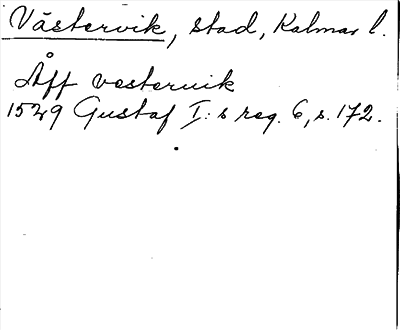 Västervik, stad, Kalmar l.
Åff vesteruik
1529 Gustaf I:s reg. 6, s. 172.